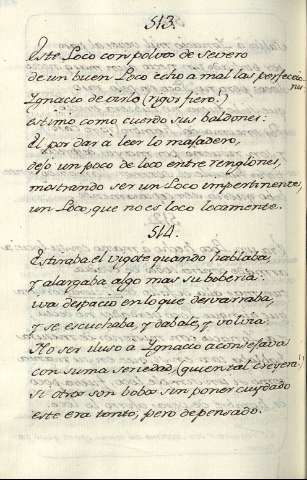 513.
Este Loco con polvos de severo
de un buen Loco echo a mal las perfeccio
nes
Ygnacio de oirlo (rigor fiero!)
estimo como cuerdo sus baldones:
El por dar a leer lo majadero,
dejo un poco de loco entre renglones,
mostrando ser un Loco impertinente,
un Loco, que no es loco locamente.
514.
Estiraba el vigote quando hablaba,
y alargaba algo mas su boberia:
iva despacio en lo que desvarraba,
y se escuchaba, y dabale, y volvia
No ser iluso a Ygnacio aconsejava
con suma seriedad, (quien tal creyera!)
si otros son bobos sin poner cuydado
este era tonto, pero de pensado.